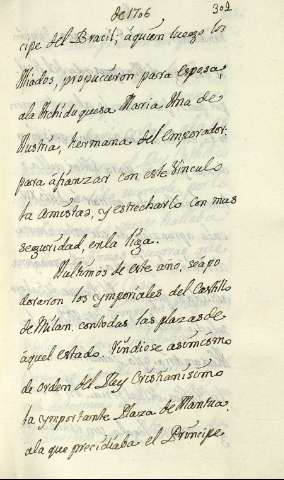 de 1706
302
cipe del Bracil, á quien luego los
Aliados, propucieron para esposa,
ala Archiduquesa Maria Ana de
Austria, hermana del emperador:
para afianzar con este Vinculo
la amistad, y estrecharlo con mas
seguridad, en la liga.
Aultimos de este ano, se apo
deraron los ymperiales del Castillo
de Milan, con todas las plazas de
aquel estado. Rindiose asimismo
de orden del Rey Cristianisimo
la ymportante Plaza de Mantua,
ala que precidiaba el Principe